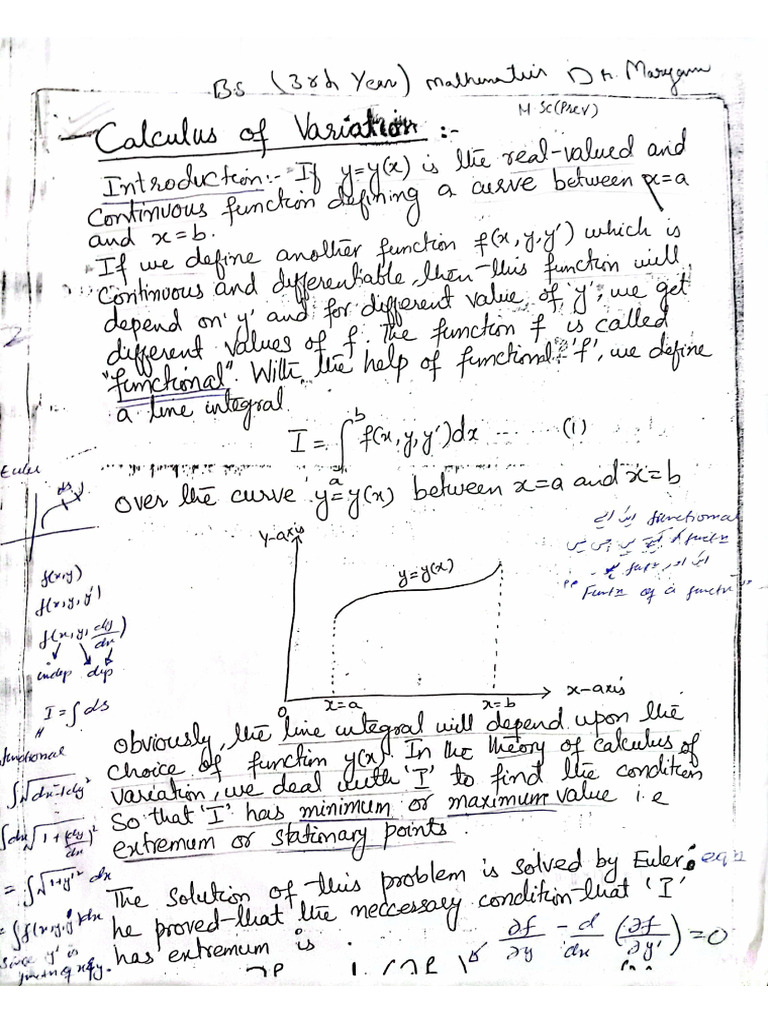 BS (3rd Year) Mathematics Dr. Maryam
M.Sc(Prev)
Calculus of Variation :-
Introduction:- If y=y(x) is the real-valued and
Continuous function defining a curve between x=a
and x=b.
If we define another function f(x,y,y') which is
Continuous and differentiable, then this function will
depend on 'y' and for different value of 'y', we get
different values of f. The function f is called
"functional". With the help of functional 'f', we define
a line integral
I = ∫_a^b f(x,y,y')dx ---- (1)
over the curve y=y(x) between x=a and x=b
Euler
ds
f(x,y)
f(x,y,y')
f(x,y,dy/dx)
indep dep
I = ∫ds
functional
∫√dx²+dy²
∫dx√1+(dy/dx)²
= ∫√1+y'² dx
= ∫f(x,y,y')dx
Since y' is
functional
"Functn of a functn"
y-axis
y=y(x)
0
x=a
x=b
x-axis
Obviously, the line integral will depend upon the
choice of function y(x). In the theory of calculus of
variation, we deal with 'I' to find the condition
So that 'I' has minimum or maximum value i.e
extremum or stationary points.
The solution of this problem is solved by Euler. eqn
he proved that the neccessary condition that 'I'
has extremum is
∂f/∂y - d/dx (∂f/∂y') = 0